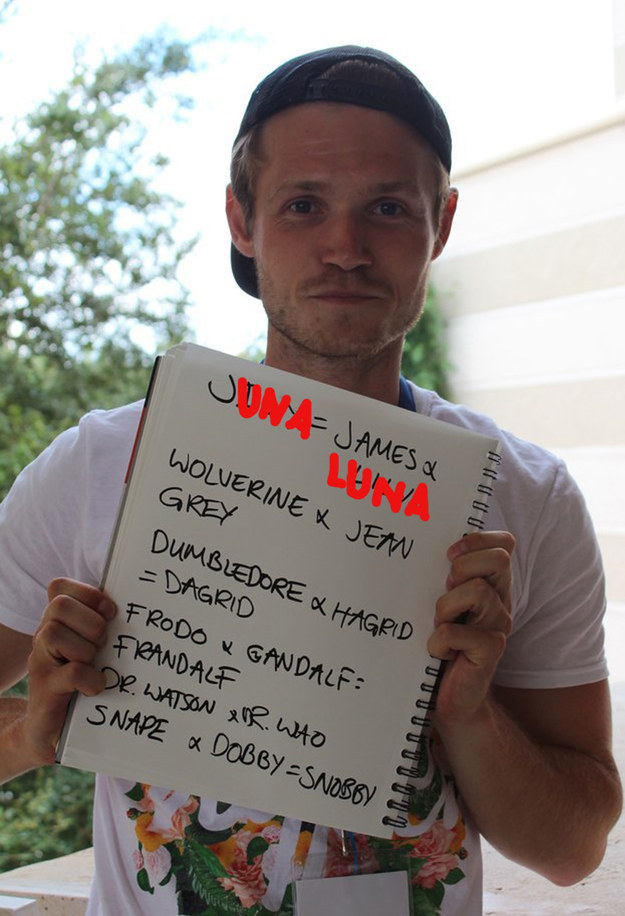 JUNA = JAMES &
LUNA
WOLVERINE & JEAN
GREY
DUMBLEDORE & HAGRID
= DAGRID
FRODO & GANDALF =
FRANDALF
DR. WATSON & DR. WHO
SNAPE & DOBBY = SNOBBY